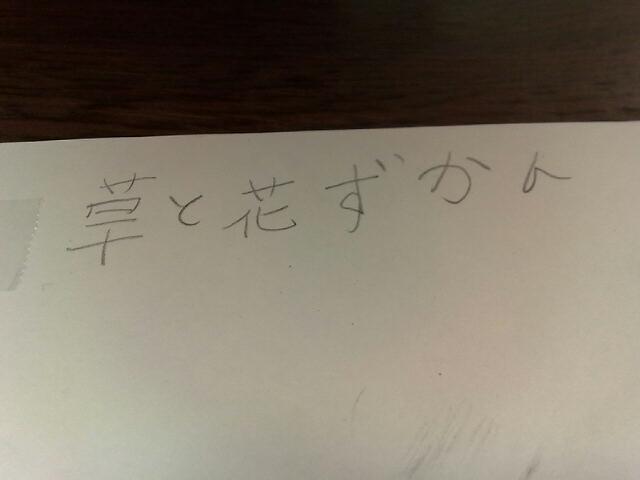 草と花ずかん